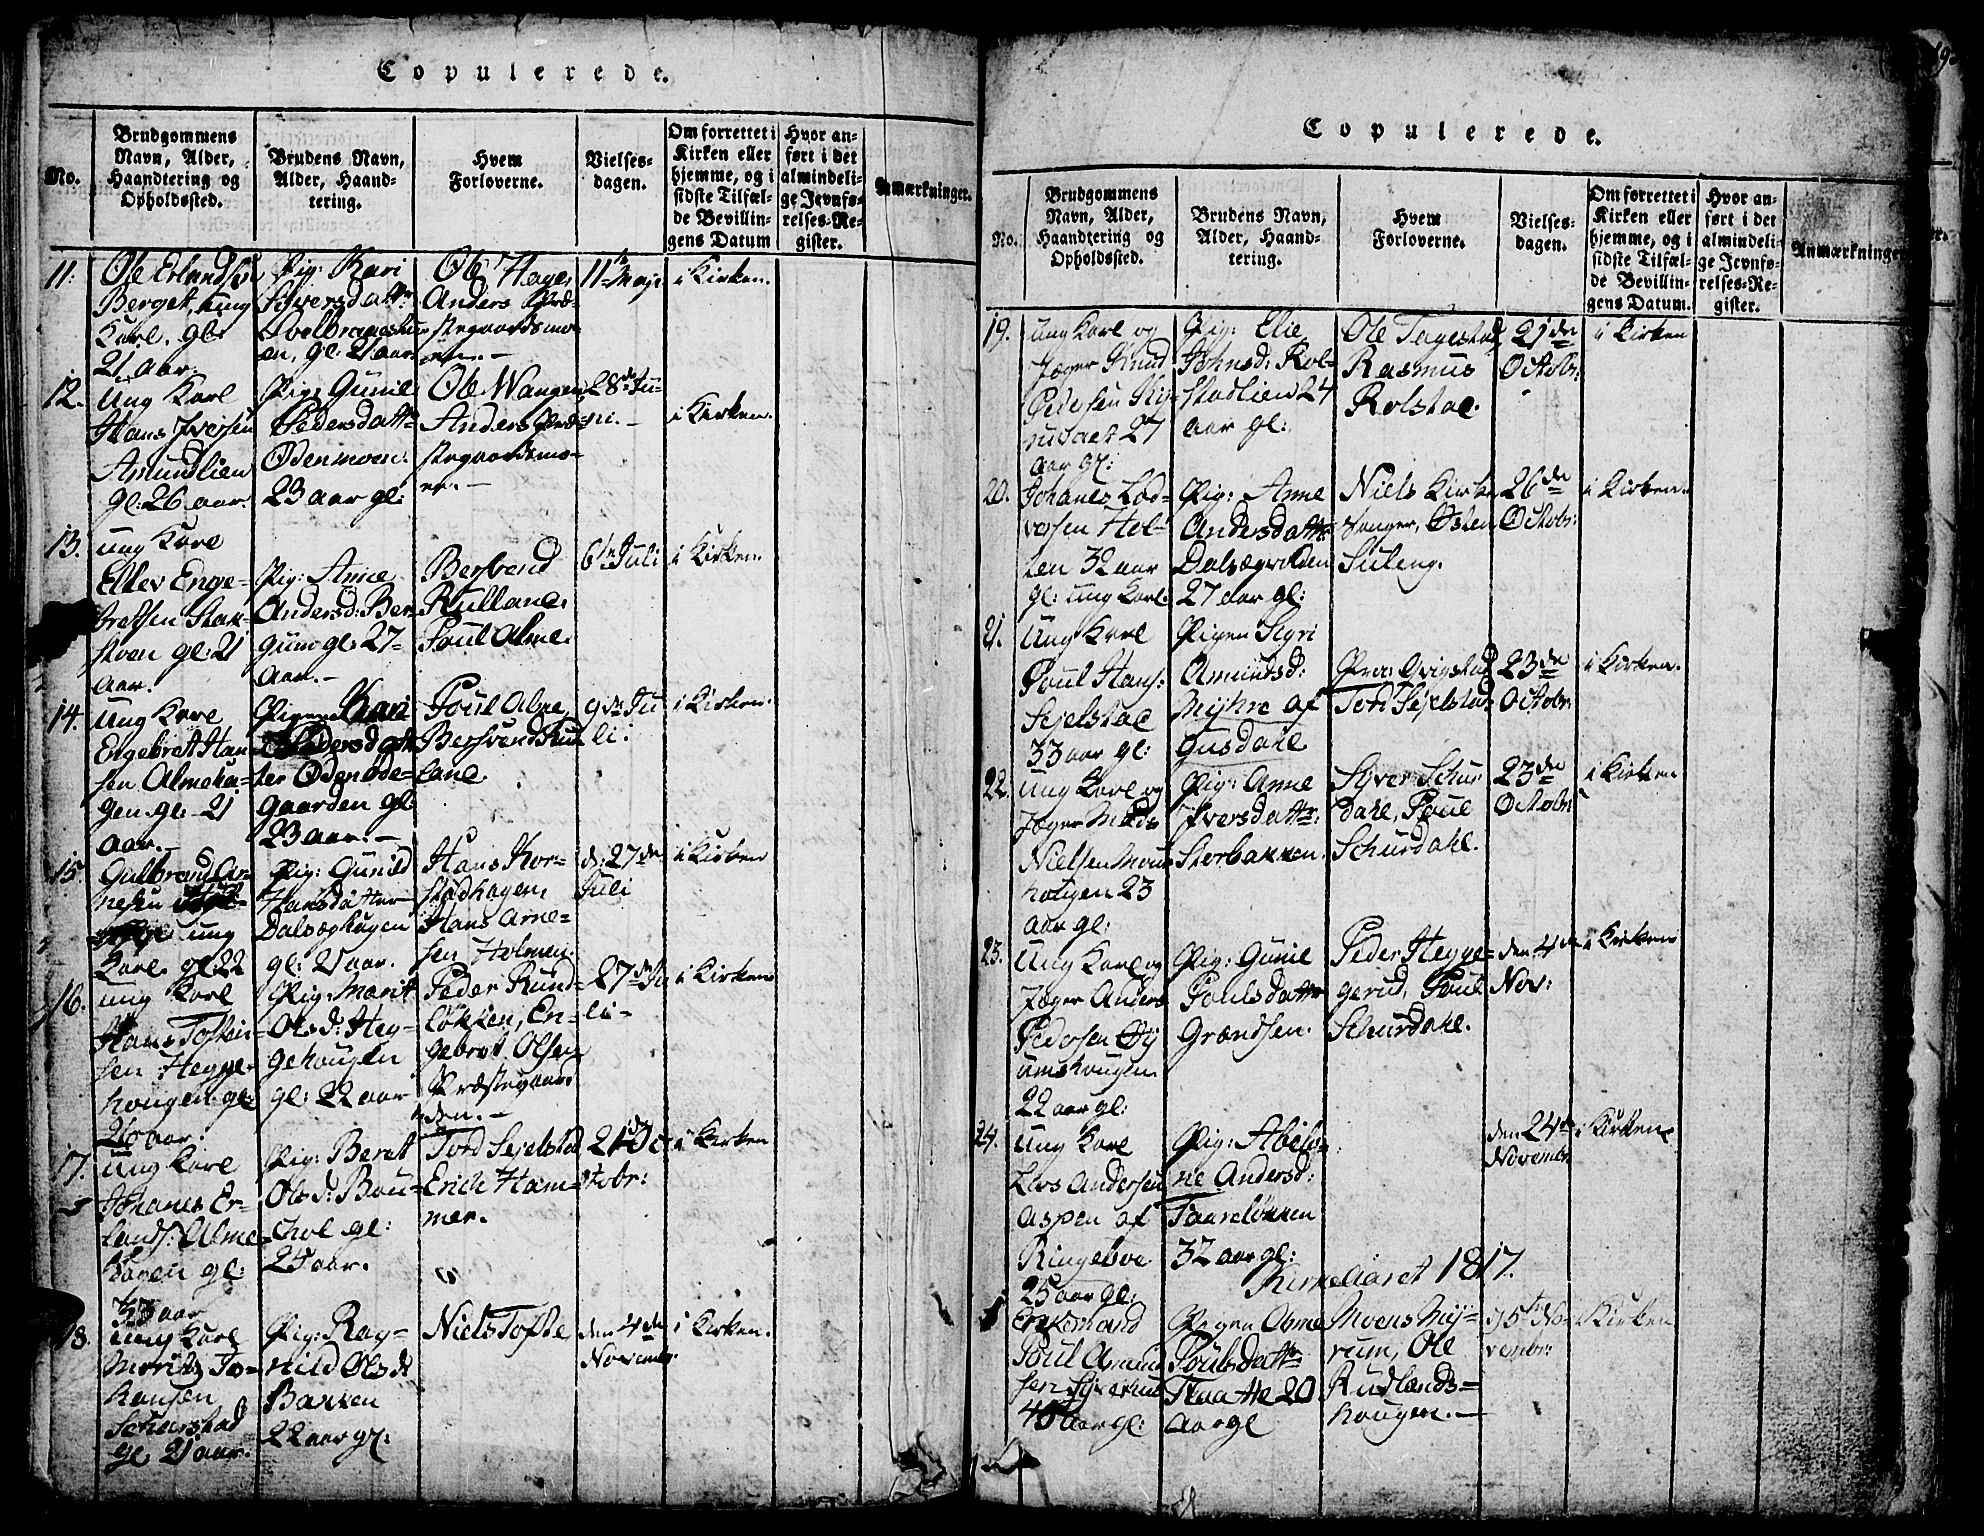 Copulerede.
No.
Brudgommens
Navn, Alder,
Haandtering og
Opholdssted.
Brudens Navn,
Alder, Haand-
tering.
Hvem
Forloverne.
Vielses-
dagen.
Om forrettet i
Kirken eller
hjemme, og i
sidste Tilfæl-
de Bevillin-
gens Datum
Hvor an-
ført i det
almindeli-
ge Jevnfø-
relses-Re-
gister.
Anmærkninger.
11.
Ole Erlandsen
Berget, ung
Karl, gl:
21 aar.
Pig: Kari
Siversdattr
en, gl: 21 aar.
Ole Hage,
Anders Præ-
stegaardsmo-
en.-
11te Maji
i Kirken.
12.
Ung Karl
Hans Iversen
Amundlien
gl: 26 aar.
Pig: Gunil
Pedersdattr
Ødenmoen
23 aar gl:
Ole Wangen,
Anders Præ-
stegaardsmo-
en.-
28de Ju-
ni.-
i Kirken.
13.
ung Karl
Ellev Enge-
bretsen Stak-
stoen gl: 21
aar.
Pig: Anne
Andersd: Ber-
gum gl: 27
Aar.-
Bersvend
Rulland.
Poul Alme.
6te Juli
i Kirken.
14.
Ung Karl
Engebret Han-
sen Almeha-
gen gl: 21
aar.-
Pigen Kari
Pedersdat-
ter Ødenøde-
gaarden gl:
23 aar.-
Poul Alme,
Bersvend Rul-
land.
9de Ju
li.
i Kirken.
15.
Gulbrand Ar-
nesen
ung
Karl. gl: 22
Pig: Gunild
Hansdatter
Dalsæghugen
gl: 21 aar.
Hans Kor-
stadhagen,
Hans Arne-
sen Holmen.
d: 27de
Juli
i Kirken
16.
ung Karl
Hans Tostein-
sen Hegge-
hougen gl:
26 aar.
Pig: Marit
Olsd: Heg-
gehougen
gl: 22 aar
Peder Rund-
løkken, En-
gebret Olsen
Præstegaar-
den.-
27de Ju
li-
i Kirken
17.
Ung Karl
Johanes Er-
lands: Alme-
gl:
33 aar
Pig: Beret
Olsd: Bou-
hol gl:
25 aar.
Tord Sejelstad
Erich Ham-
mer.
21de Oc-
tobr:
i Kirken
18.
ung Karl
Morits Jo-
hansen
gl 21 aar.
Pig: Rag-
nild Olsd:
Bakken
22 aar gl.
Niels Tofte
den 4de
Novembr.
i Kirken.
Copulerede.
No.
Brudgommens
Navn, Alder,
Haandtering og
Opholdssted.
Brudens Navn,
Alder, Haand-
tering.
Hvem
Forloverne.
Vielses-
dagen.
Om forrettet i
Kirken eller
hjemme, og i
sidste Tilfæl-
de Bevillin-
gens Datum.
Hvor an-
ført i det
almindeli-
ge Jevnfø-
relses-Re-
gister.
Anmærkninger.
19.
ung Karl og
Jæger Knud
Pedersen
27
aar gl:
Pig: Elie
Johnsd: Rol-
stadlien 24
aar gl:
Ole Tagestad,
Rasmus
Rolstad.
21de
Octobr:
i Kirken
20.
Johanes Lod-
versen Hol-
ten 32 aar
gl: ung Karl.
Pig: Anne
Andersdattr
Dalsægvolden
27 aar gl:
Niels Kirke
stenger, Østen
Suleng.
26de
Octobr:
i Kirken.
21.
Ung Karl
Poul Hans:
Sejelstad
33 aar gl:
Pigen Sigri
Amundsd:
Myhre af
Gusdahl
Qvigstad
Tord Sejelstad.
23de
Octobr.
i Kirken.
22.
Ung Karl og
Jæger Mads
Nielsen Mou-
hougen 23
aar gl:
Pig: Anne
Iversdattr:
Storbakken.
Syver Schur
dahl, Poul
Schurdahl.
23de
Octobr:
i Kirken
23.
Ung Karl og
Jæger Anders
Pedersen Øy
umshougen
22 aar gl:
Pig: Gunil
Poulsdattr
Grændsen.
Peder Hegge-
gerud, Poul
Schurdahl.
den 4de
Nov:
i Kirken
24.
Ung Karl
Lars Andersen
Aspen af
Ringeboe
25 aar gl:
Pig: Abelo-
ne Andersd:
Taareløkken
32 aar gl:
den 24de
Novembr.
i Kirken.
Kirke Aaret 1817.
Enkemand
Poul Amund-
sen
45 aar gl:
Pigen Anne
Poulsdattr
Flaatte 20
Aar gl
Moens My-
rum, Ole
Rudlands-
hougen.-
15te No-
vembr:
i Kirken